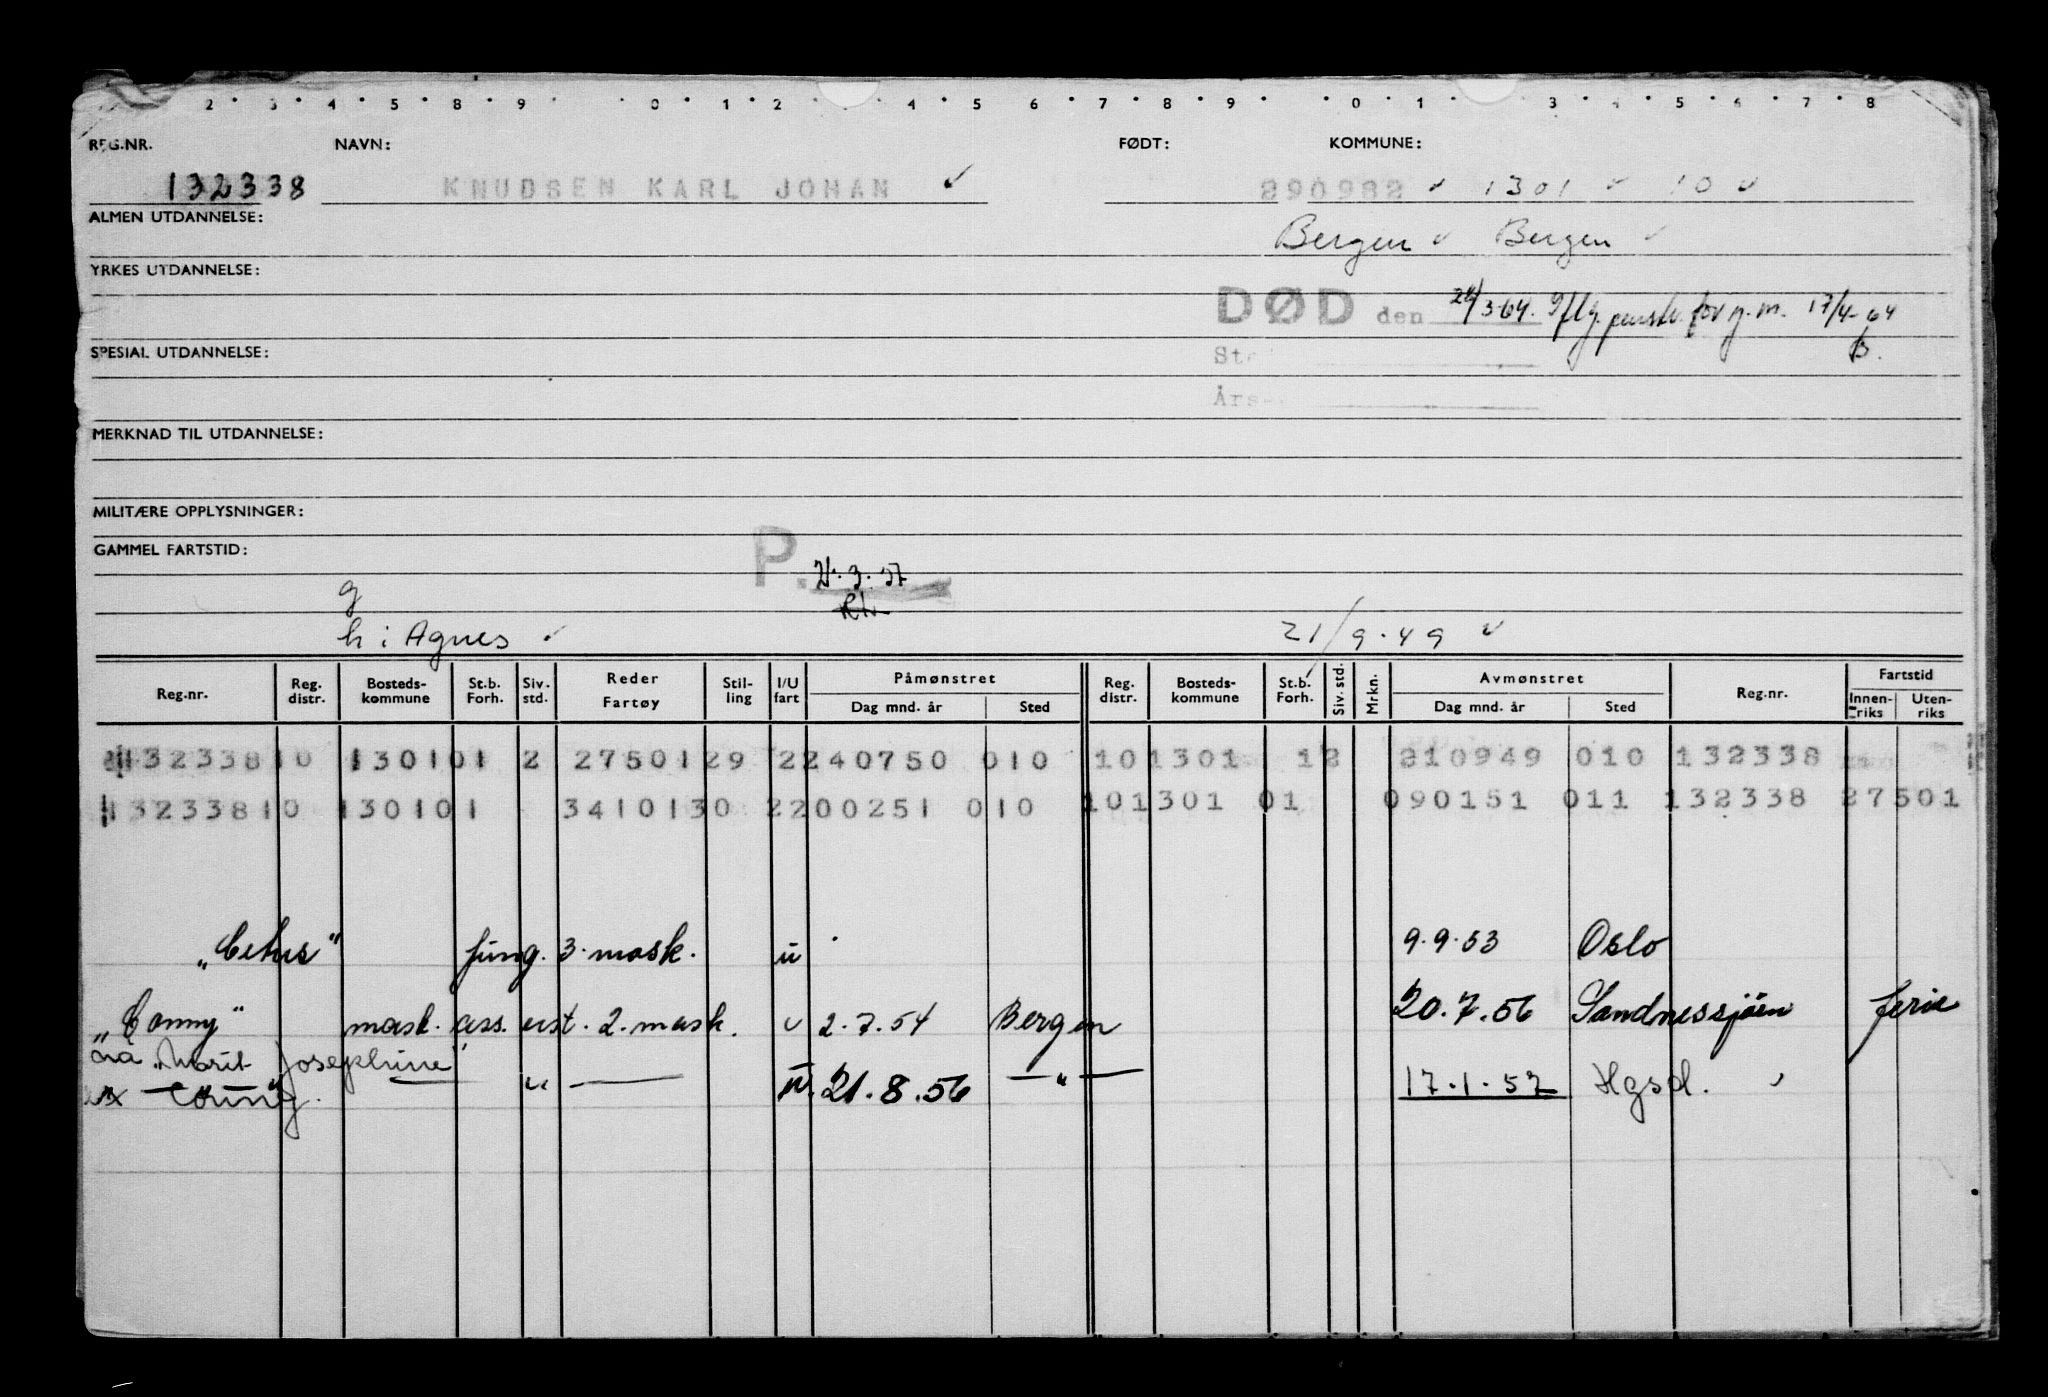 2 · 3 · 4 · 5 · 8 · 9 · 0 · 1 · 2 · 4 · 5 6 · 7 · 8 · 9 · 0 · 1 · 3 · 4 · 5 · 6 · 7 · 8
REG.NR. NAVN: FØDT: KOMMUNE:
132338 KNUDSEN KARL JOHAN ✓ 290982 ✓ 1301 ✓ 10 ✓
ALMEN UTDANNELSE: Bergen ✓ Bergen ✓
YRKES UTDANNELSE:
DØD den 24/3-64. iflg. for g.m. 17/4-64
B.
SPESIAL UTDANNELSE: St
Års-
MERKNAD TIL UTDANNELSE:
MILITÆRE OPPLYSNINGER:
GAMMEL FARTSTID: P. 21.3.57
g
h i Agnes ✓ 21/9.49 ✓
Reg.nr. Reg. distr. Bosteds-kommune St.b. Forh. Siv. std. Reder Fartøy Stil-ling I/U fart Påmønstret Dag mnd. år Sted Reg. distr. Bosteds-kommune St.b. Forh. Siv. std. Mrkn. Avmønstret Dag mnd. år Sted Reg.nr. Fartstid Innen-riks Uten-riks
132338 10 1301 01 2 27501 29 2 240750 010 10 1301 12 210949 010 132338
132338 10 1301 01 34101 30 2 200251 010 10 1301 01 090151 011 132338 27501
"Cetus" fung. 3. mask. u 9.9.53 Oslo
"Conny" mask. ass. eist. 2. mask. u 2.7.54 Bergen 20.7.56 Sandnessjøen ferie
nå "Marit Josephine" — " — u. 21.8.56 — " — 17.1.57 Hgsd.
ex Conny.